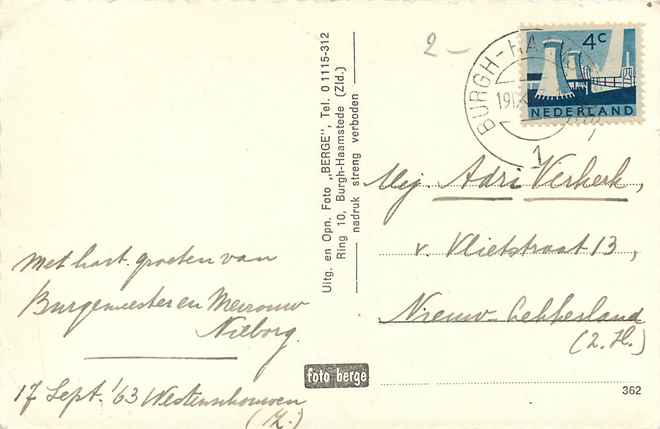 2-
BURGH-HA
19 IX
1
4c
NEDERLAND
Uitg. en Opn. Foto „BERGE", Tel. 0 1115-312
Ring 10, Burgh-Haamstede (Zld.)
nadruk streng verboden
Mej. Adri Verkerk,
v. Vlietstraat 13,
Nieuw-Lekkerland
(Z. H.)
Met hart. groeten van
Burgemeester en Mevrouw
Nieborg.
17 Sept. '63 Westenschouwen
(Z.)
foto berge
362